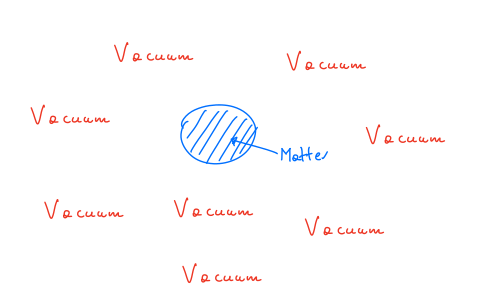 Vacuum
Vacuum
Vacuum
Vacuum
Matter
Vacuum
Vacuum
Vacuum
Vacuum